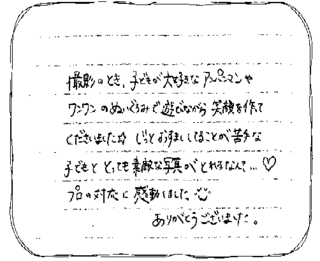 撮影のとき、子どもが大好きなアンパンマンや
ワンワンのぬいぐるみで遊びながら 笑顔を作って
くださいました☆ じっとおすましすることが苦手な
子どもと とっても素敵な写真が とれるなんて…♡
プロの対応に 感動しました
ありがとうございました。